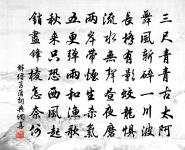 三尺青青古太阿
舞風斬碎一川波
長橋有影蛟龍懼
流水無聲晝夜磨
兩岸帶煙生殺氣
五更彈雨和漁歌
秋來只恐西風起
銷盡鋒棱怎奈何
解縉菖蒲